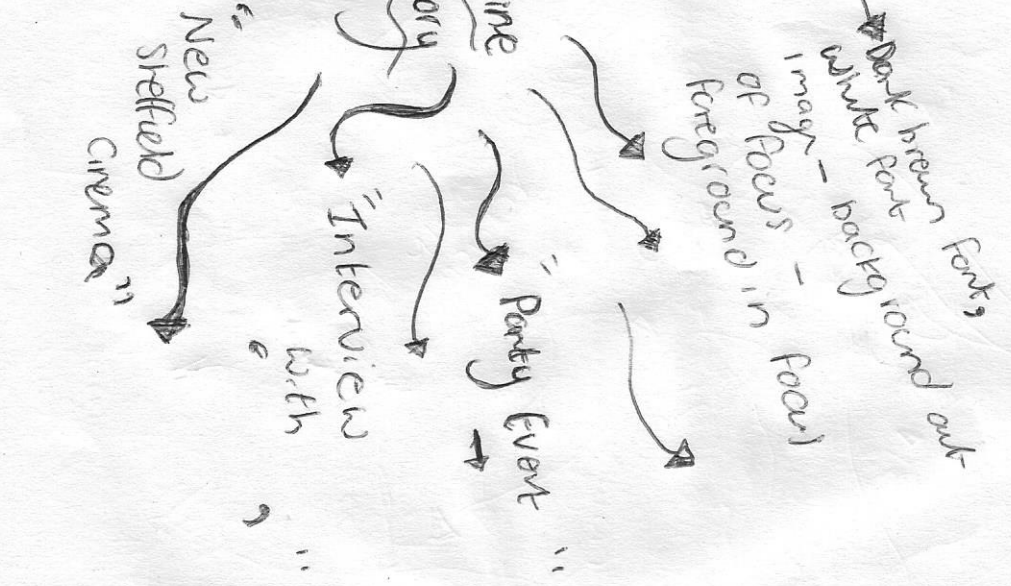 Dark brown font,
white font
image - background out
of focus -
foreground in focus
ine
ory
"Party Event → "
"Interview
with
' ' "
"New
Sheffield
Cinema"